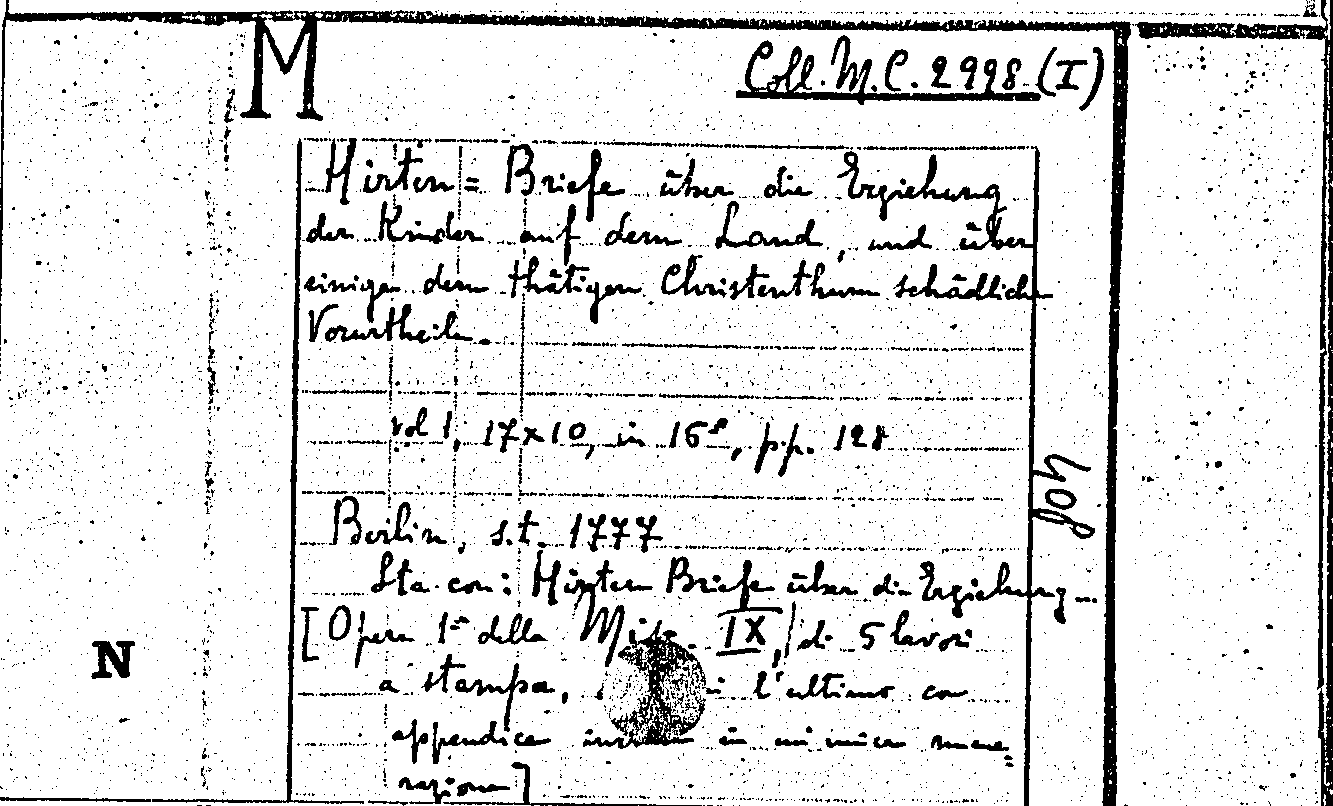 M
Coll. M.C. 2998 (I)
Hirten= Briefe über die Erziehung
der Kinder auf dem Land, und über
einige dem thätigen Christenthum schädliche
Vorurtheile.
vol 1, 17x10, in 16°, pp. 128
Berlin, s.t. 1777
Sta con: Hirten Briefe über die Erziehung...
[Opera 1ª della Misc. IX, di 5 lavori
a stampa, l'ultimo con
appendice in unica nume=
razione]
408
N